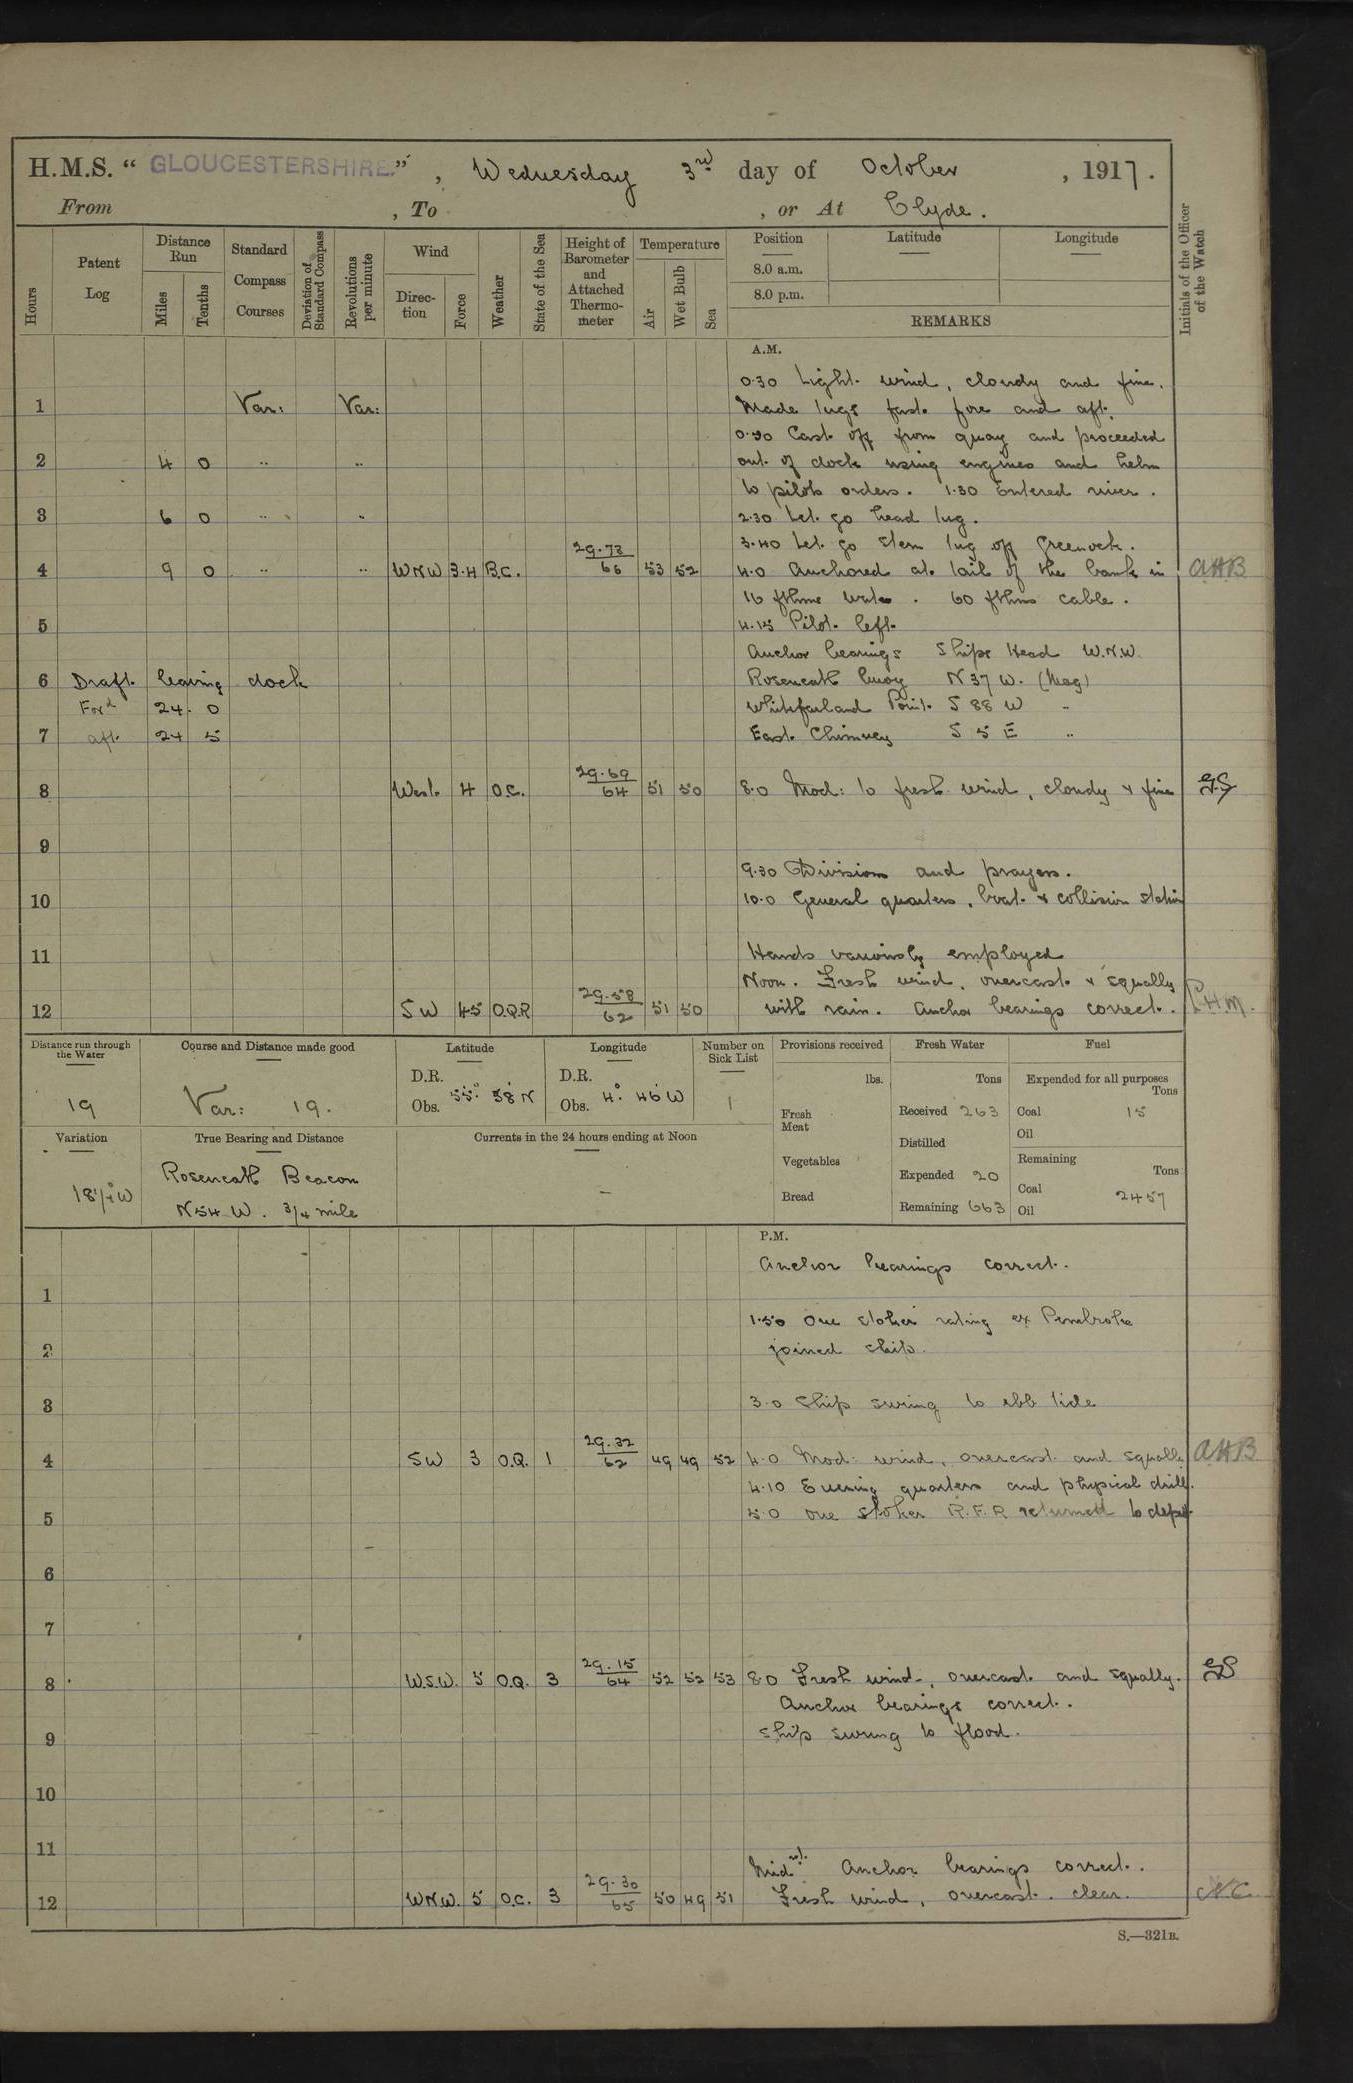 H.M.S. “ GLOUCESTERSHIRE.” , Wednesday 3rd day of October , 1917.
From , To , or At Clyde.
Hours
Patent Log
Distance Run
Miles
Tenths
Standard Compass Courses
Deviation of Standard Compass
Revolutions per minute
Wind
Direc-tion
Force
Weather
State of the Sea
Height of Barometer and Attached Thermo-meter
Temperature
Air
Wet Bulb
Sea
Position Latitude Longitude
8.0 a.m.
8.0 p.m.
REMARKS
Initials of the Officer of the Watch
A.M.
0.30 Light wind, cloudy and fine.
1 Var: Var: Made tugs fast fore and aft.
Cast off from quay and proceeded
2 4 0 .. .. out of dock using engines and helm
to pilots orders. 1.30 Entered river.
3 6 0 .. .. 2.30 Let go head tug.
3.40 Let go stern tug off Greenock.
4 9 0 .. .. WNW 3.4 B.C. 29.73/66 53 52 4.0 Anchored at tail of the bank in AHB
16 fthms water. 60 fthms cable.
5 4.15 Pilot left
Anchor bearings Ships Head W.N.W.
6 Draft leaving dock Roseneath buoy N 37 W. (Mag)
Ford 24. 0 Whitefarland Point S 88 W ..
7 aft 24 5 East Chimney S 5 E ..
8 West 4 O.C. 29.69/64 51 50 8.0 Mod: to fresh wind, cloudy & fine
9
9.30 Divisions and prayers.
10 10.0 General quarters, boat & collision station
11 Hands variously employed
Noon. Fresh wind, overcast & squally
12 SW 45 O.Q.R 29.58/62 51 50 with rain. Anchor bearings correct.
Distance run through the Water
19
Course and Distance made good
Var: 19.
Latitude
D.R.
Obs. 55° 58' N
Longitude
D.R.
Obs. 4° 46' W
Number on Sick List
1
Provisions received
lbs.
Fresh Meat
Vegetables
Bread
Fresh Water
Tons
Received 263
Distilled
Expended 20
Remaining 663
Fuel
Expended for all purposes
Tons
Coal 15
Oil
Remaining
Tons
Coal 2457
Oil
Variation
18¼° W
True Bearing and Distance
Roseneath Beacon
N54 W. 3/4 mile
Currents in the 24 hours ending at Noon
—
P.M.
Anchor bearings correct.
1
1.50 One stoker rating ex Pembroke
2 joined ship.
3 3.0 Ship swing to ebb tide
4 SW 3 O.Q. 1 29.32/62 49 49 52 4.0 Mod: wind, overcast and squally AHB
4.10 Evening quarters and physical drill.
5 5.0 One stoker R.F.R. returned to depot.
6
7
8 W.S.W. 5 O.Q. 3 29.15/64 52 52 53 8.0 Fresh wind, overcast and squally.
Anchor bearings correct.
9 Ship swing to flood.
10
11
Midnt. Anchor bearings correct.
12 WNW. 5 O.C. 3 29.30/65 50 49 51 Fresh wind, overcast. clear.
S.—321B.